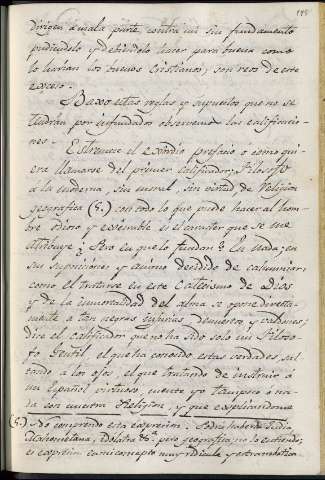 dirigen á mala parte contra mi sin fundamento
pudiendolo y debiendolo hacer para buena como
lo harian los buenos Cristianos, son reos de este
exceso.
Baxo estas reglas y supuestos que no se
tendrán por infundados observemos las calificacio-
nes.
Estremece el exordio prefacio o como qui-
era llamarse del primer calificador, Filosofo
a la moderna, sin moral, sin virtud, de Religion
geografica (5.) con todo lo que puede hacer al hom-
bre odioso y execrable es el caracter que se me
atribuye ¿Pero en que lo fundan? En nada; en
sus suposiciones y animo decidido de calumniar,
como el tratarse en este Catecismo de Dios
y de la inmortalidad del alma se opone directa-
mente a tan negras injurias denuestos y
dice el calificador que no ha sido solo un Filoso-
fo Gentil, el que ha conocido estas verdades, sal-
tando a los ojos, el que tratando de instruir á
un Español virtuoso, cuente yo tampoco á na-
da con nuestra Religion, y que explicandome
(5.) No comprendo esta expresion. Podrá haberla Judia,
Mahometana, idolatra &.ª pero geografica, no lo entiendo;
es expresion en mi concepto muy ridicula y extravagante.